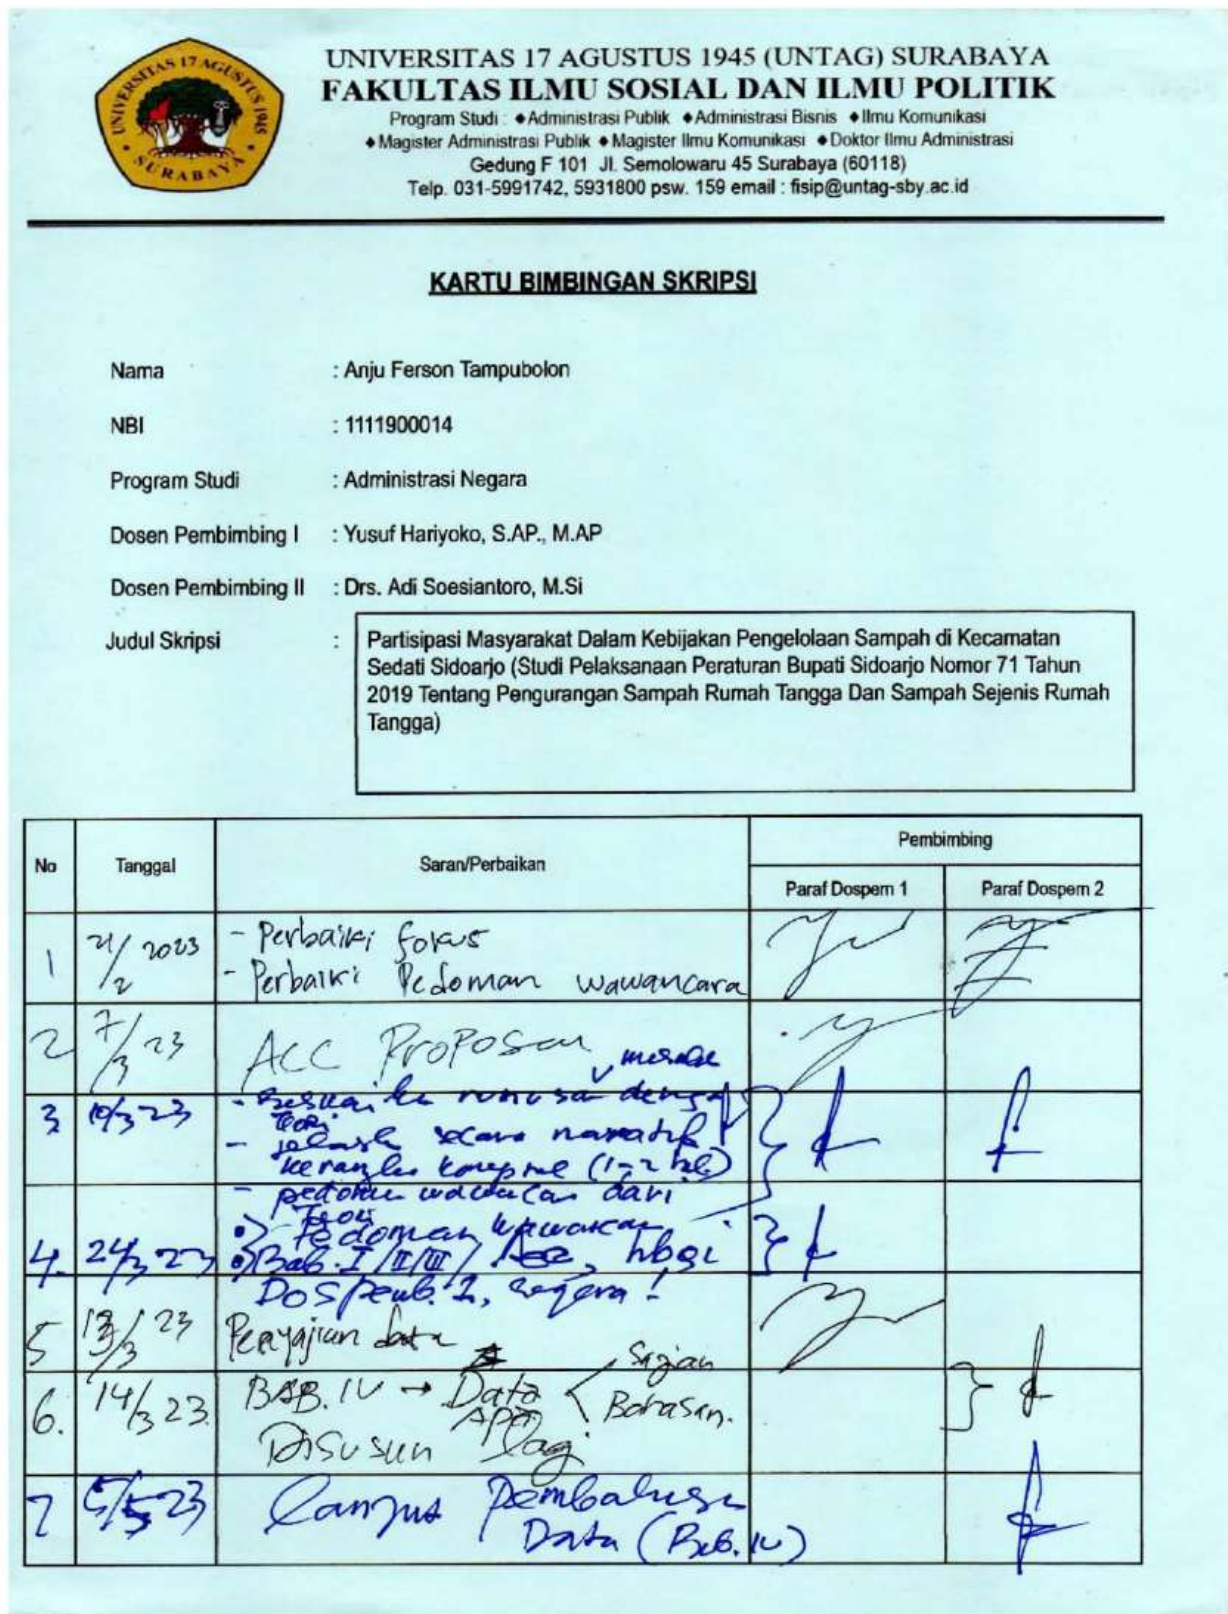 UNIVERSITAS 17 AGUSTUS 1945
SURABAYA
UNIVERSITAS 17 AGUSTUS 1945 (UNTAG) SURABAYA
FAKULTAS ILMU SOSIAL DAN ILMU POLITIK
Program Studi : ♦Administrasi Publik ♦Administrasi Bisnis ♦Ilmu Komunikasi
♦Magister Administrasi Publik ♦Magister Ilmu Komunikasi ♦Doktor Ilmu Administrasi
Gedung F 101 Jl. Semolowaru 45 Surabaya (60118)
Telp. 031-5991742, 5931800 psw. 159 email : fisip@untag-sby.ac.id
KARTU BIMBINGAN SKRIPSI
Nama : Anju Ferson Tampubolon
NBI : 1111900014
Program Studi : Administrasi Negara
Dosen Pembimbing I : Yusuf Hariyoko, S.AP., M.AP
Dosen Pembimbing II : Drs. Adi Soesiantoro, M.Si
Judul Skripsi : Partisipasi Masyarakat Dalam Kebijakan Pengelolaan Sampah di Kecamatan
Sedati Sidoarjo (Studi Pelaksanaan Peraturan Bupati Sidoarjo Nomor 71 Tahun
2019 Tentang Pengurangan Sampah Rumah Tangga Dan Sampah Sejenis Rumah
Tangga)
No Tanggal Saran/Perbaikan Pembimbing
Paraf Dospem 1 Paraf Dospem 2
1 21/2 2023 - Perbaiki fokus
- Perbaiki Pedoman wawancara
2 7/3 23 ACC Proposal
3 10/3 23 - rumusan
teori
- secara naratif
(1-2 hl)
- dari
Teori
- Pedoman
4. 24/3 23 Bab. I/II/III/
Dospemb. 2, segera!
5 /3 23 Penyajian data
6. 14/3 23 BAB. IV → Data Sajian
Apa Bahasan.
Disusun lagi
7 5/5 23 Pembahasan
Data (Bab. IV)